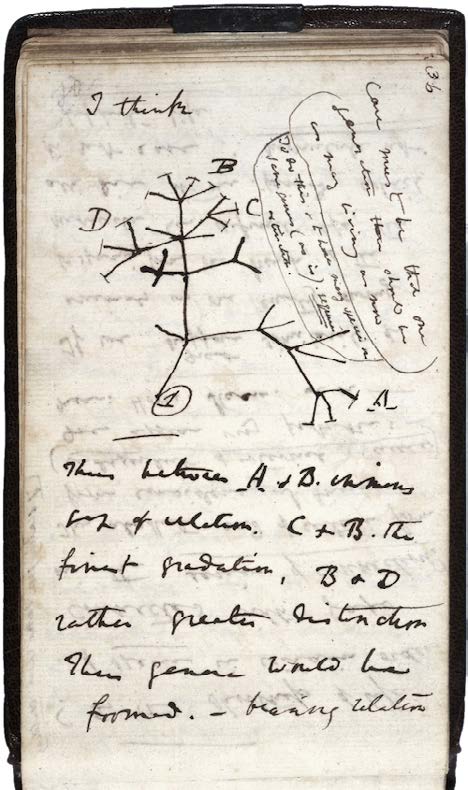 36
I think
Case must be that one
generation then should be
as many living as now
To do this & to have many species in
same genus (as is). requires
extinction.
B
D
C
1
A
Thus between A & B. immens
gap of relation. C & B. The
finest gradation, B & D
rather greater distinction
Thus genera would be
formed. — bearing relation